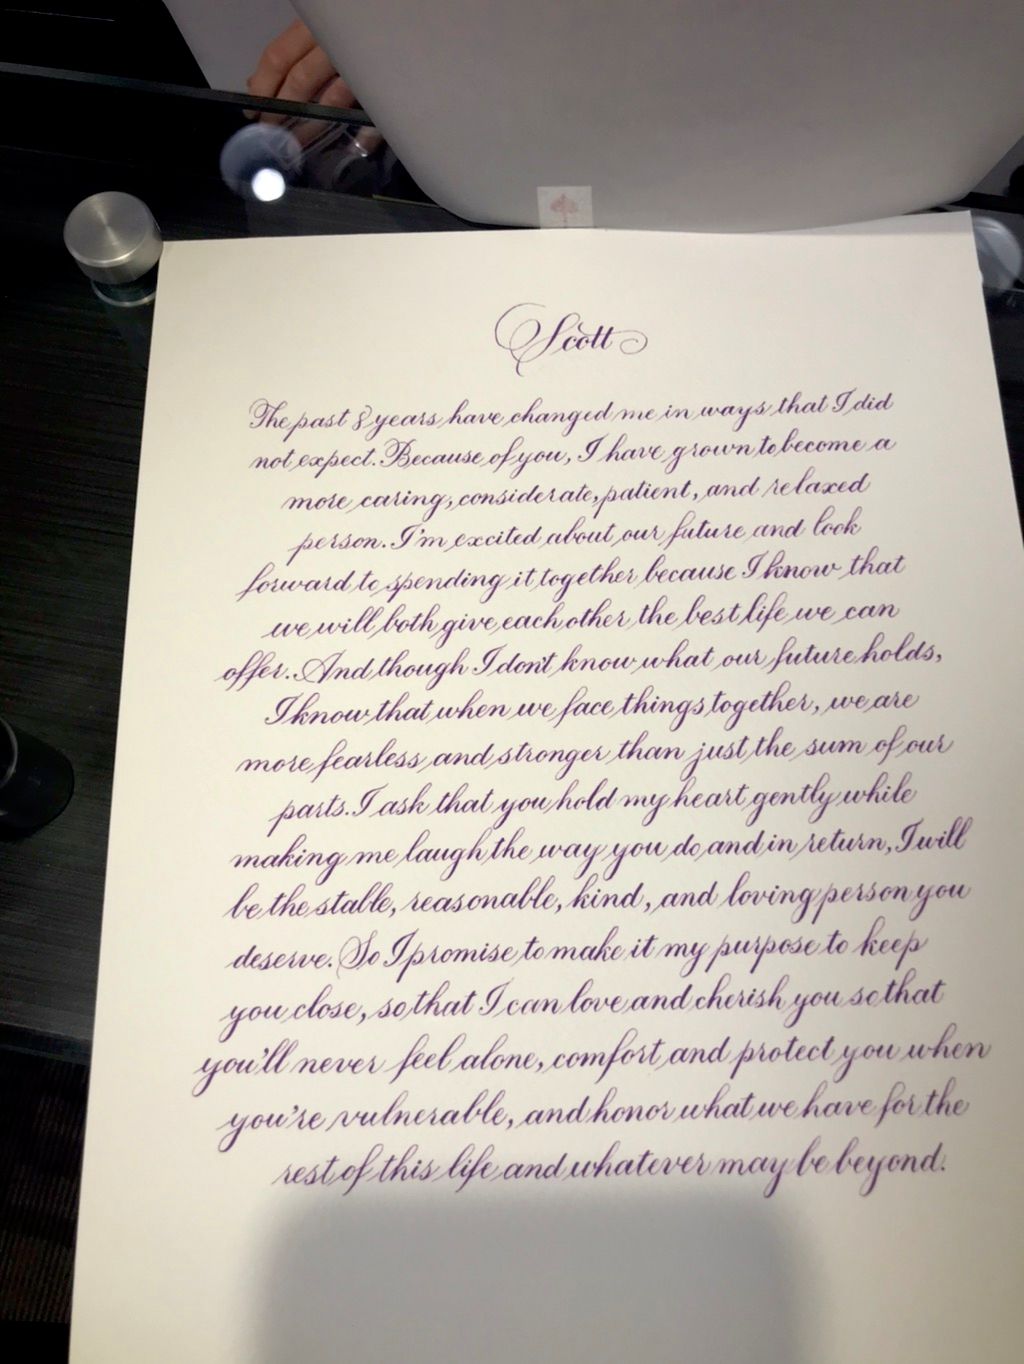 Scott
The past 8 years have changed me in ways that I did
not expect. Because of you, I have grown to become a
more caring, considerate, patient, and relaxed
person. I'm excited about our future and look
forward to spending it together because I know that
we will both give each other the best life we can
offer. And though I don't know what our future holds,
I know that when we face things together, we are
more fearless and stronger than just the sum of our
parts. I ask that you hold my heart gently while
making me laugh the way you do and in return, I will
be the stable, reasonable, kind, and loving person you
deserve. So I promise to make it my purpose to keep
you close, so that I can love and cherish you so that
you'll never feel alone, comfort and protect you when
you're vulnerable, and honor what we have for the
rest of this life and whatever may be beyond.